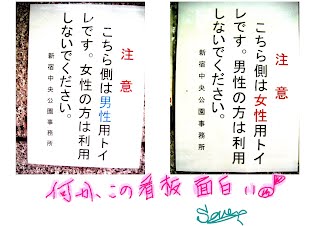 注意
こちら側は男性用トイ
レです。女性の方は利用
しないでください。
新宿中央公園事務所
注意
こちら側は女性用トイ
レです。男性の方は利用
しないでください。
新宿中央公園事務所
何か、この看板 面白い